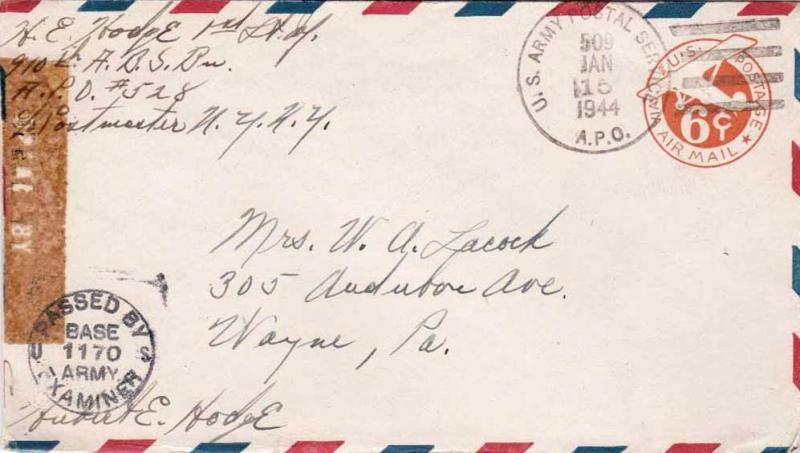 H. E. Hodge 1st Lt.
910th A.B.S. Bn.
A.P.O. #528
Postmaster N.Y. N.Y.
U.S. ARMY POSTAL SERVICE
509
JAN
15
1944
A.P.O.
U.S. POSTAGE
6¢
VIA AIR MAIL
BY
Mrs. W. A. Lacock
305 Audubon Ave.
Wayne, Pa.
PASSED BY
BASE
1170
ARMY
EXAMINER
E. Hodge